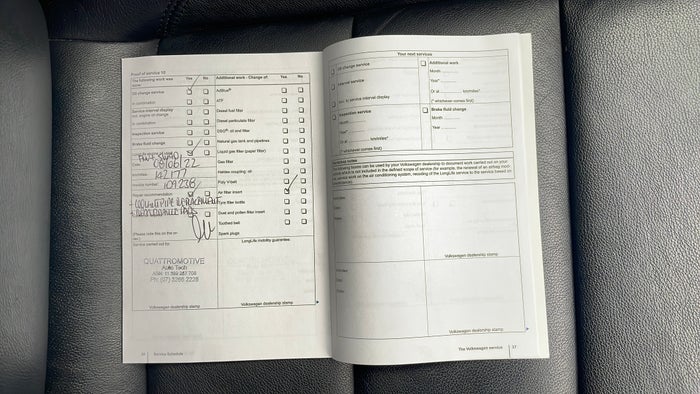 Proof of service 10
The following work was done: Yes No
Oil change service
In combination
Service interval display incl. engine oil change
In combination
Inspection service
Brake fluid change
08/06/22
142177
109238
Repair recommendation
REPLACEMENT
(Please note this on the
Service carried out by:
QUATTROMOTIVE
Auto Tech
Volkswagen dealership stamp
Service Schedule
Additional work - Change of: Yes No
AdBlue®
ATF
Diesel fuel filter
Diesel particulate filter
DSG® oil and filter
Natural gas tank and pipelines
Liquid gas filter (paper filter)
Gas filter
Haldex coupling: oil
Poly V-belt
Air filter insert
Dust and pollen filter insert
Toothed belt
Spark plugs
LongLife mobility guarantee
Volkswagen dealership stamp
Your next services
Oil change service
Interval service
acc. to service interval display
Inspection service
Month
Year*
Or at km/miles*
(* whichever comes first)
Additional work
Month
Year*
Or at km/miles*
(* whichever comes first)
Brake fluid change
Month
Year
The following boxes can be used by your Volkswagen dealership to document work carried out on your
vehicle which is not included in the defined scope of service (for example, the renewal of an airbag module,
service work on the air conditioning system, recoding of the LongLife service to the service based on
Volkswagen dealership stamp
Volkswagen dealership stamp
The Volkswagen service 37